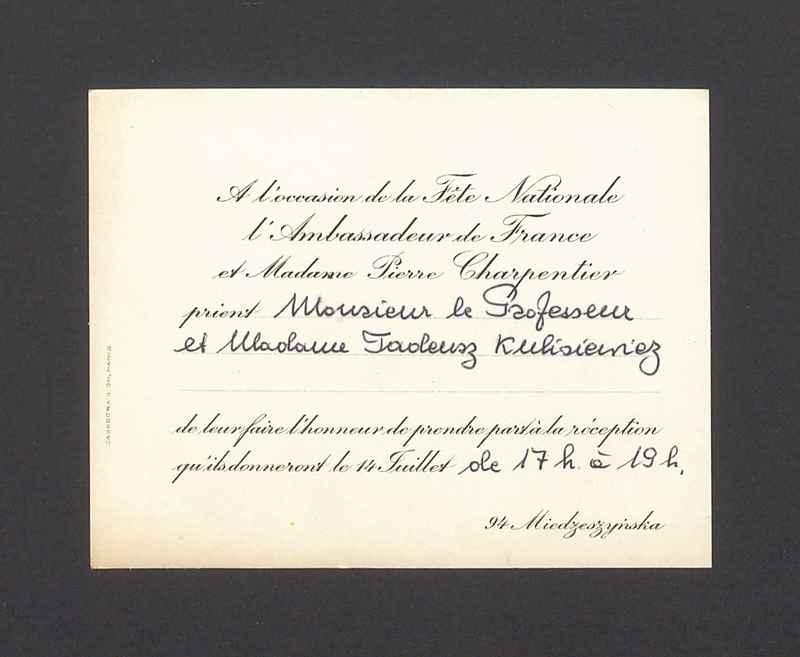 A l'occasion de la Fête Nationale
l'Ambassadeur de France
et Madame Pierre Charpentier
prient Monsieur le Professeur
et Madame Tadeusz Kulisiewicz
de leur faire l'honneur de prendre part à la réception
qu'ils donneront le 14 Juillet de 17 h. à 19 h.
94 Miedzeszyńska